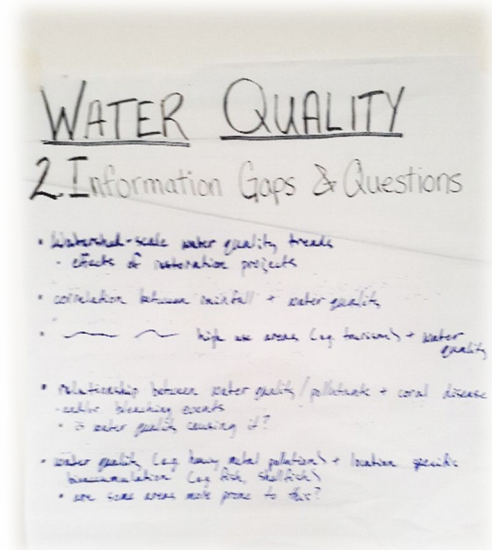 WATER QUALITY
2. Information Gaps & Questions
• Watershed-scale water quality trends
• effects of restoration projects
• correlation between rainfall + water quality
• high use areas (eg tourism) + water
quality
• relationship between water quality/pollutants + coral disease
bleaching events
• is water quality causing it?
• water quality (eg heavy metal pollution) + location specific
bioaccumulation (eg fish, shellfish)
• are some areas more prone to this?